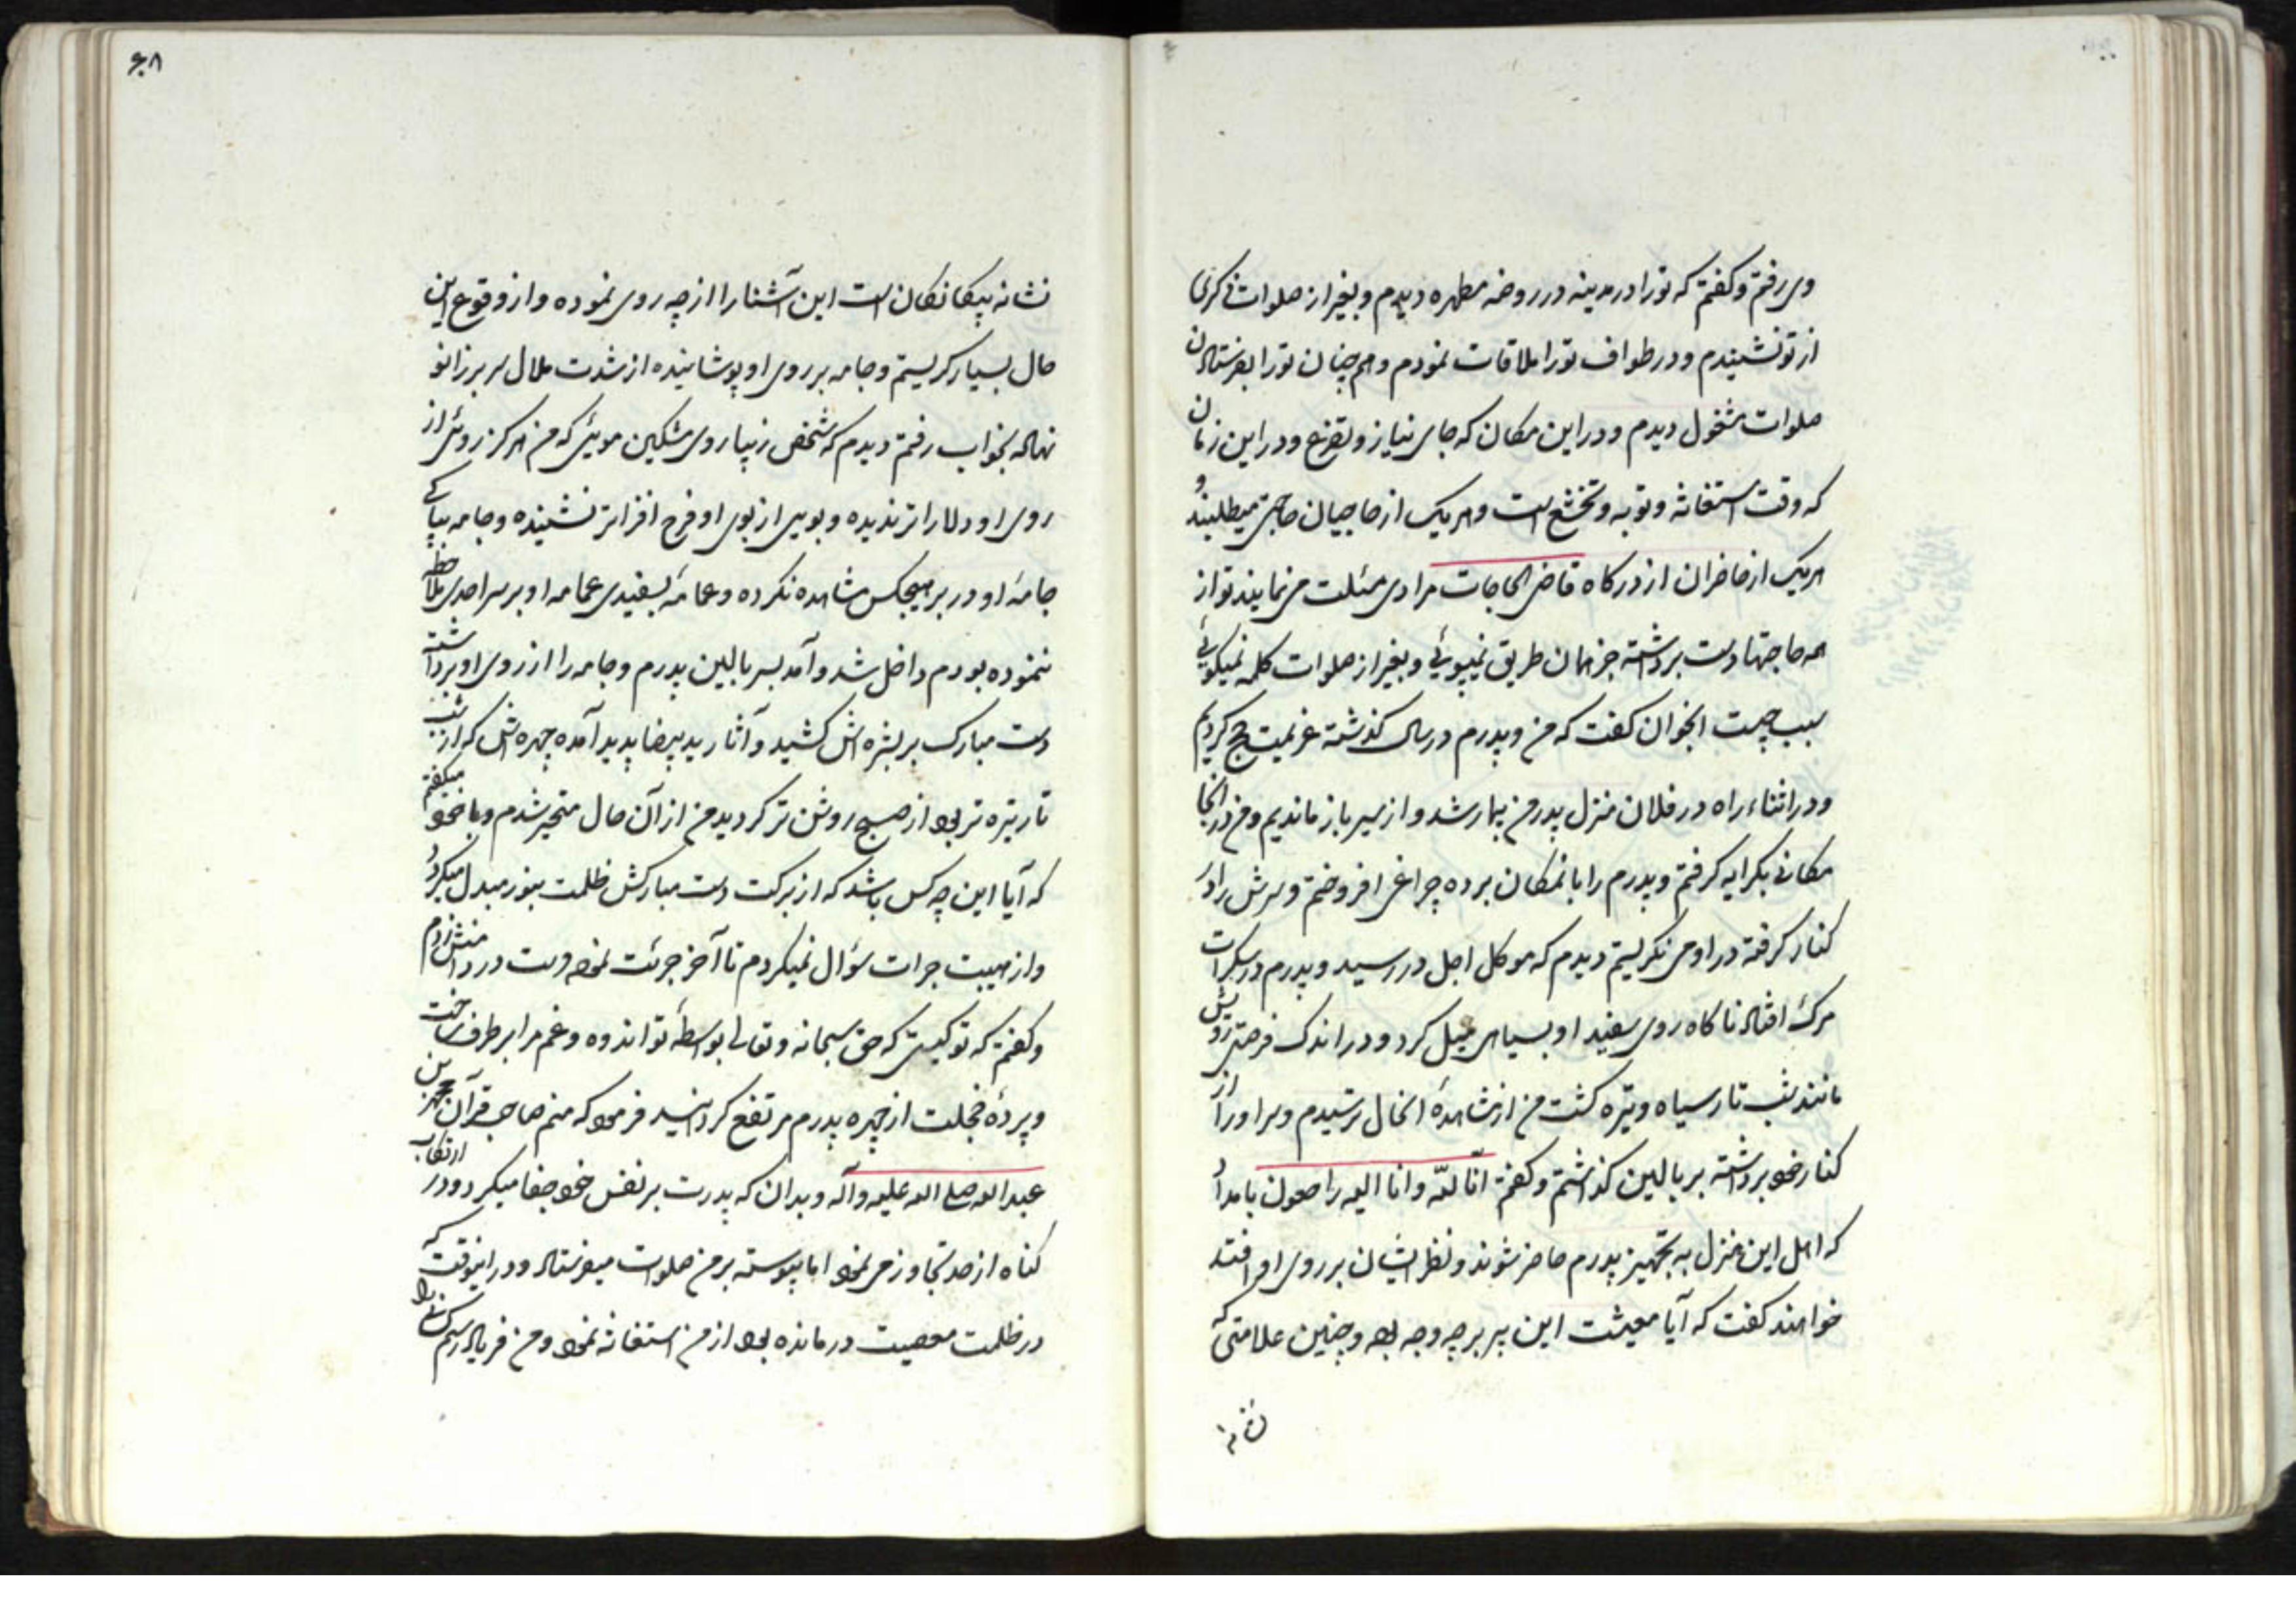 وی رفتم و کفتم که تو را در مدینه در روضه مطهره دیدم و بغیر از صلوات ذکری
از تو نشنیدم و در طواف تو را ملاقات نمودم و هم چنان تو را بفرستادن
صلوات مشغول دیدم و در این مکان که جای نیاز و تضرع و در این زمان
که وقت استغاثه و توبه و تخشع است و هر یک از حاجیان حاجتی میطلبند و
هر یک از حاضران از درکاه قاضی الحاجات مرادی مسئلت می نمایند تو از
همه حاجتها دست برداشته جز همان طریق نمیپوئی و بغیر از صلوات کلمه نمیکوئی
سبب چیست انجوان کفت که من و پدرم در سال کذشته عزیمت حج کردیم
و در اثناء راه در فلان منزل پدر من بیمار شد و از سیر باز ماندیم و من در انجا
مکانی بکرایه کرفتم و پدرم را بانمکان برده چراغی افروختم و سرش را در
کنار کرفته در او می نکریستم دیدم که موکل اجل در رسید و پدرم در سکرات
مرک افتاد ناکاه روی سفید او بسیاهی میل کرد و در اندک فرصتی رویش
مانند شب تار سیاه و تیره کشت من از مشاهدهٔ انحال ترسیدم و سر او را از
کنار خود برداشته بر بالین کذاشتم و کفتم انّا للّه و انا الیه راجعون بامداد
که اهل این منزل به تجهیز پدرم حاضر شوند و نظر ایشان بر روی او افتد
خواهند کفت که آیا معیشت این پیر بر چه وجه بود و چنین علامتی که
نشانه
۶۰۸
نشانه بیکانکان است این آشنا را از چه روی نموده و از وقوع این
حال بسیار کریستم و جامه بر روی او پوشانیده از شدت ملال سر بر زانو
نهاده بخواب رفتم دیدم که شخص زیبا روی مشکین موئی که من هرکز روئی از
روی او دلاراتر ندیده و بویی از بوی او فرح افزاتر نشنیده و جامه بپاکی
جامهٔ او در بر هیچکس مشاهده نکرده و عمامهٔ بسفیدی عمامه او بر سر احدی ملاحظه
ننموده بودم داخل شد و آمد بسر بالین پدرم و جامه را از روی او برداشته
دست مبارک بر بشره اش کشید و آثار ید بیضا پدید آمده چهره اش که از شب
تار تیره تر بود از صبح روشن تر کردید من از آن حال متحیر شدم و با خود میکفتم
که آیا این چه کس باشد که از برکت دست مبارکش ظلمت بنور مبدل میکردد
و از هیبت جرات سؤال نمیکردم تا آخر جرئت نموده دست در دامنش زدم
و کفتم که تو کیستی که حق سبحانه و تعالی بواسطهٔ تو اندوه و غم مرا بر طرف ساخت
و پردهٔ خجلت از چهره پدرم مرتفع کردانید فرمود که منم صاحب قرآن محمد بن
عبد الله صلی الله علیه و آله و بدان که پدرت بر نفس خود جفا میکرد و در ارتکاب
کناه از حد تجاوز می نمود اما پیوسته بر من صلوات میفرستاد و در اینوقت که
در ظلمت معصیت درمانده بود از من استغاثه نمود و من فریاد رسم کسی را